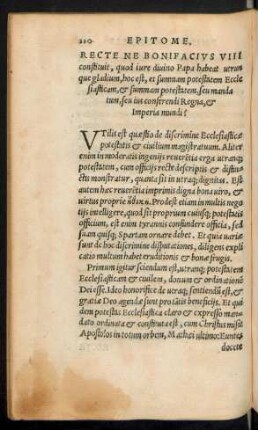 220 EPITOME.
RECTE NE BONIFACIVS VIII
constituit, quod iure diuino Papa habeat utrun
que gladium, hoc est, et summam potestatem Eccle
siasticam, & summam potestatem, seu manda
tum, seu ius conferendi Regna, &
Imperia mundi?
VTilis est quæstio de discrimine Ecclesiasticæ
potestatis & ciuilium magistratuum. Aliter
enim in moderatis ingenijs reuerẽtia erga utranq;
potestatem, cum officijs recte descriptis & distin
ctis monstratur, quanta sit in utraq; dignitas. Est
autem hec reuerẽtia imprimis digna bono uiro, &
uirtus proprie Prodest etiam in multis nego
tijs intelligere, quod sit proprium cuiusq; potestatis
officium, est enim tyrannis confundere officia, sed
suam quisq; Spartam ornare debet. Et quia uariæ
sunt de hoc discrimine disputationes, diligens expli
catio multum habet eruditionis & bonæ frugis.
Primum igitur sciendum est, utranq; potestatem
Ecclesiasticam & ciuilem, donum & ordinationẽ
Dei esse. Ideo honorifice de utraq; sentiendũ est, &
gratiæ Deo agendæ sunt pro tãtis beneficijs. Et qui
dem potestas Ecclesiastica claro & expresso man
dato ordinata & constituta est, cum Christus misit
Apostolos in totum orbem, Mathæi ultimo: Euntes
docete